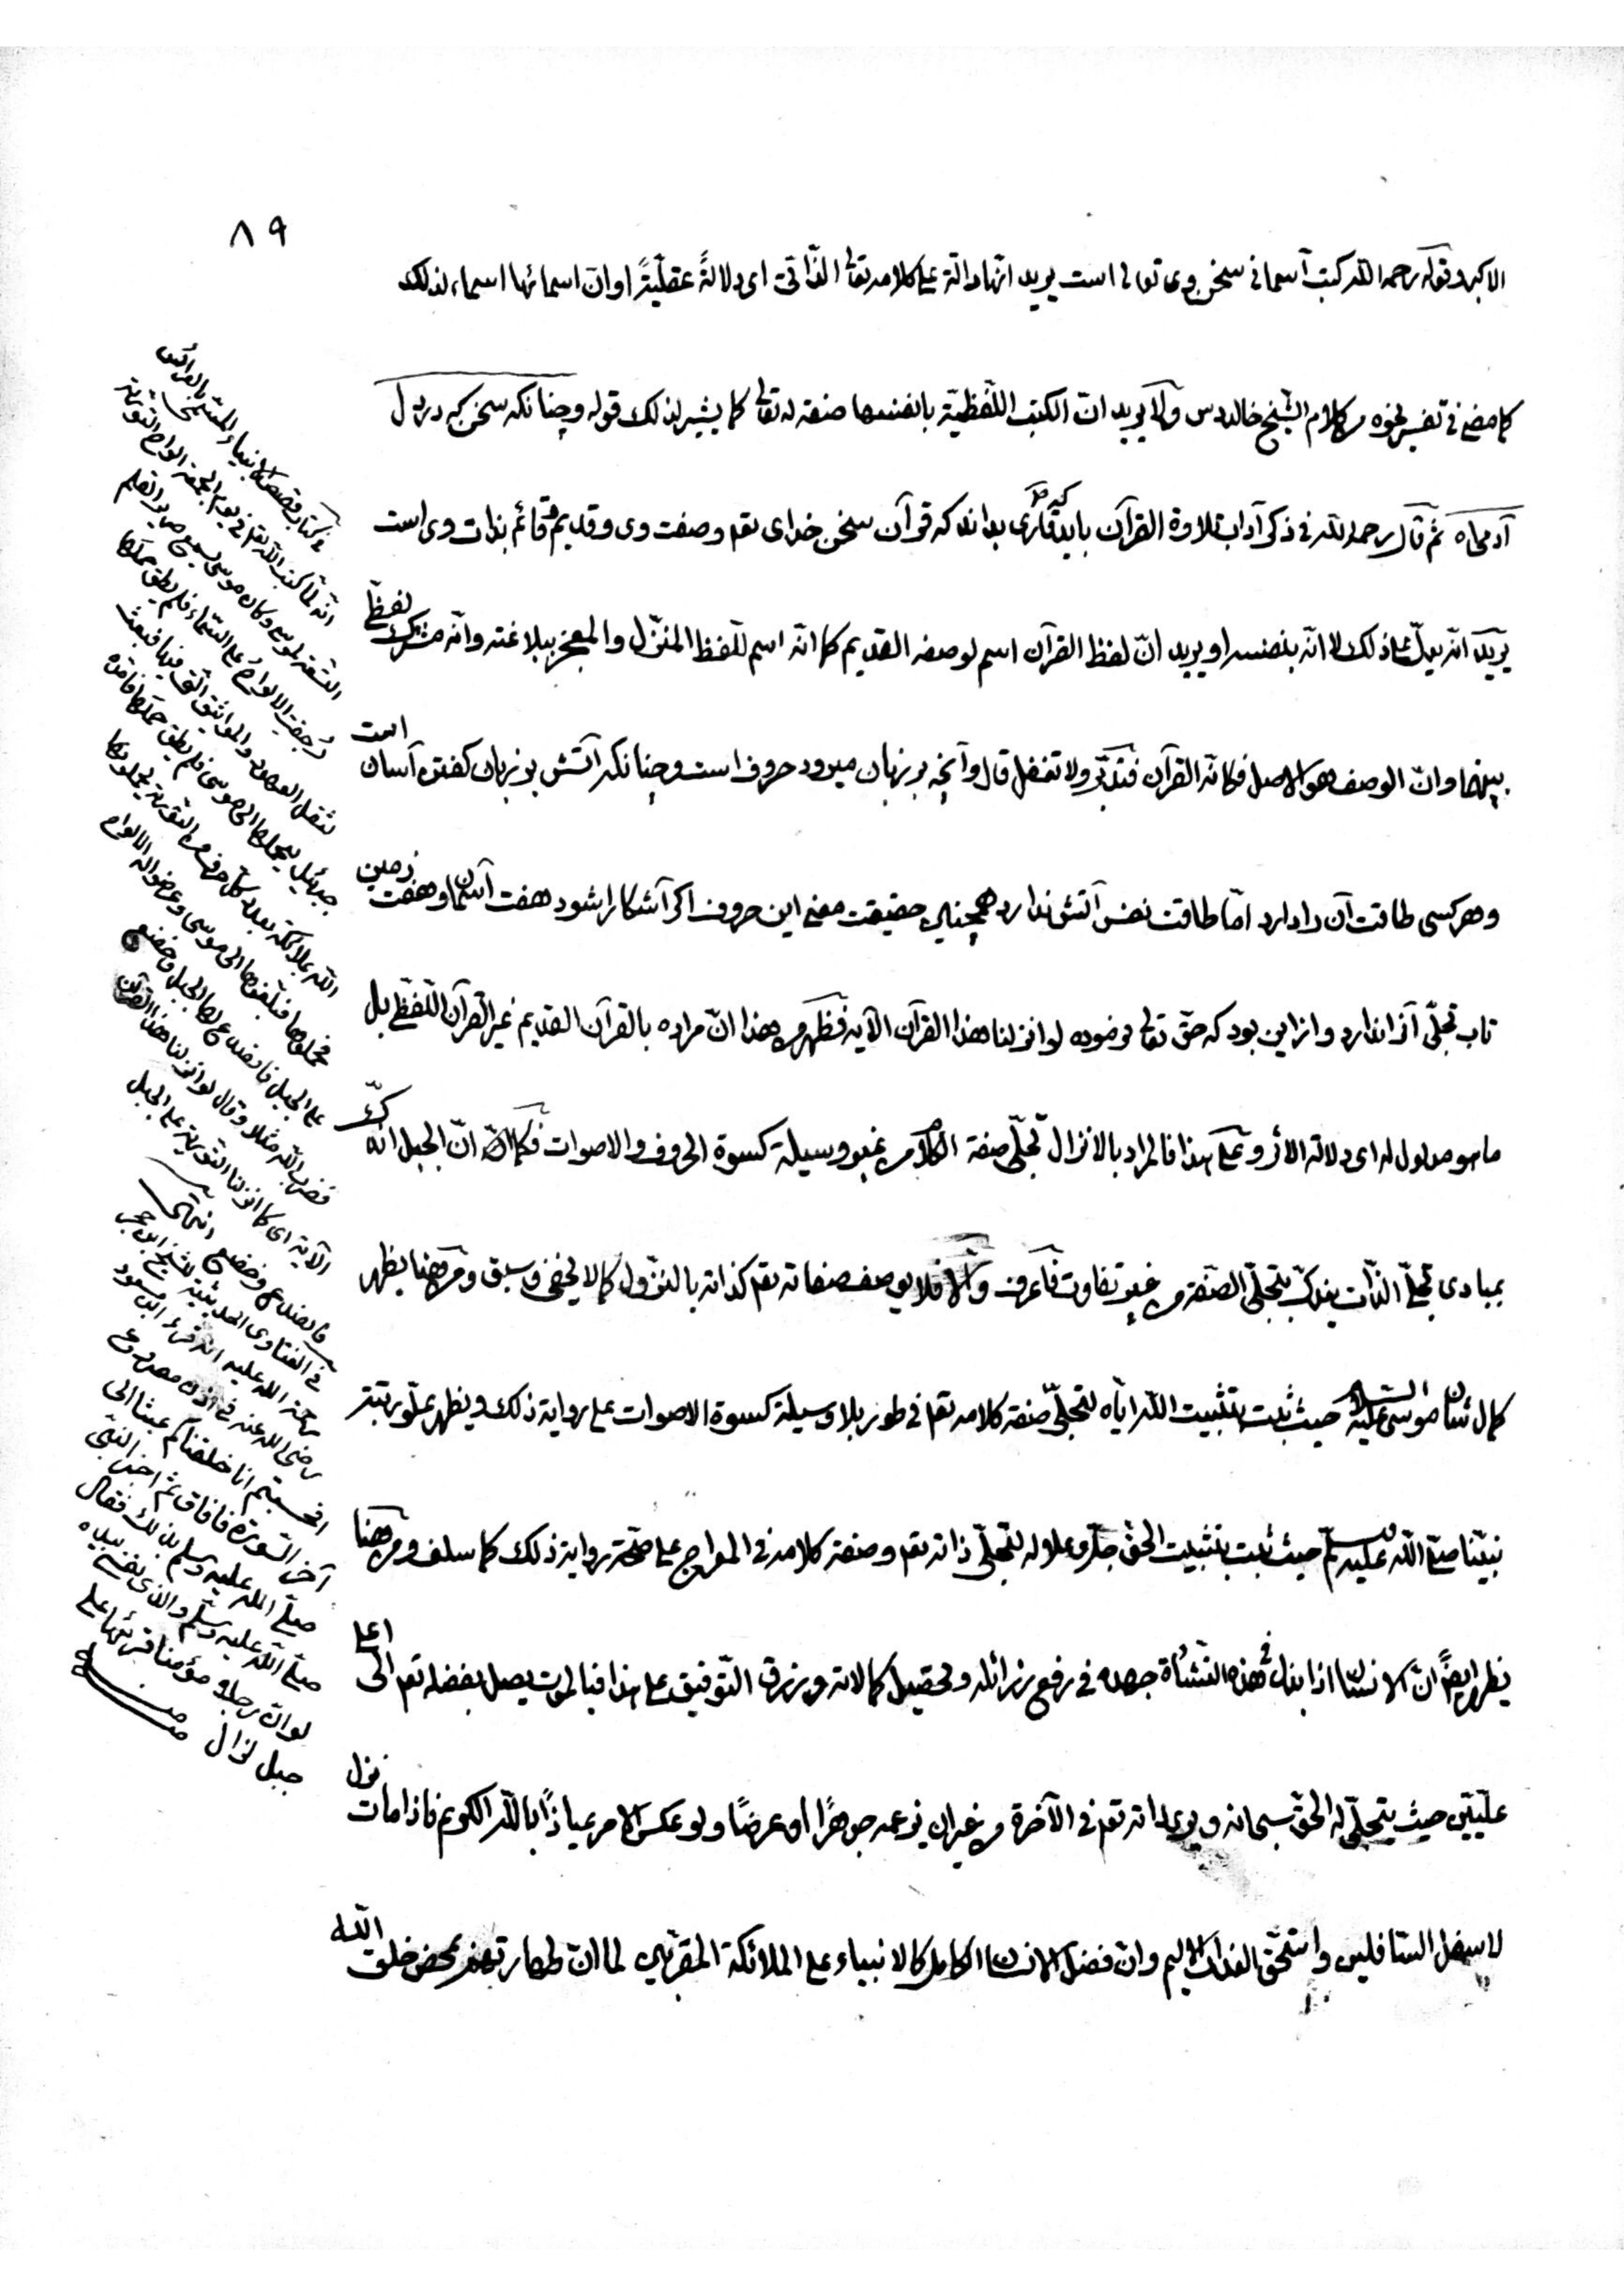 ٨٩
الاكبر وقوله رحمه الله كتب آسمانى سخن وى تعالى است يريد انّها دالّة على كلامه تعالى الذّاتى اى دلالةً عقليّةً او انّ اسمائها اسماء لذلك
كما مضى فى تفسير نحوه من كلام الشّيخ خالد قدس ولا يريد انّ الكتب اللّفظيّة بانفسها صفة له تعالى كما يشير لذلك قوله وچنانكه سخن كه در دل
آدمى اه ثمّ قال رحمه الله فى ذكر آداب تلاوة القرآن بايد كه قارى بداند كه قرآن سخن خداى تعم وصفت وى وقديم وقائم بذات وى است
يريد انّه يدلّ على ذلك لا انّه بنفسه او يريد انّ لفظ القرآن اسم لوصفه القديم كما انّه اسم للّفظ المنزّل والمعجز ببلاغته وانّه مشترك لفظىّ
بينهما وانّ الوصف هو الاصل فكانّه القرآن فتدبّر ولا تغفل قال وآنچه بر زبان ميرود حروف است وچنانكه آتش بر زبان گفتن آسان است
وهر كسى طاقت آن را دارد امّا طاقت نفس آتش ندارد همچنين حقيقت معنى اين حروف اگر آشكارا شود هفت آسمان وهفت زمين
تاب تجلّى آن ندارد واز اين بود كه حقّ تعالى فرموده لو انزلنا هذا القرآن الآية فظهر من هذا انّ مراده بالقرآن القديم غير القرآن اللّفظىّ بل
ما هو مدلول له اى دلالة الاثر وعلى هذا فالمراد بالانزال تجلّى صفة الكلام من غير وسيلة كسوة الحروف والاصوات فكما انّ الجبل اندكّ
بمبادى تجلّى الذّات يندكّ بتجلّى الصّفة من غير تفاوت فاعرف والّا فلا يوصف صفاته تعم كذاته بالنزول كما لا يخفى وسبق ومن ههنا يظهر
كمال شان موسى عليه السّلام حيث ثبت بتثبيت الله ايّاه لتجلّى صفة كلامه تعم فى طور بلا وسيلة كسوة الاصوات على رواية ذلك ويظهر علوّ رتبة
نبيّنا صلّى الله عليه وسلّم حيث ثبت بتثبيت الحقّ جلّ وعلا له لتجلّى ذاته تعم وصفة كلامه فى المعراج على صحّة رواية ذلك كما سلف ومن ههنا
يظهر ايضاً انّ الانسان اذا بذل فى هذه النّشأة جهده فى رفع رزائله وتحصيل كمالاته ورزق التّوفيق على هذا فبالموت يصل بفضله تعم الى اعلى
علّيّين حيث يتجلّى له الحقّ سبحانه ويرى ذاته تعم فى الآخرة من غير ان يزعمه جوهرًا او عرضًا ولو عكس الامر عياذًا بالله الكريم فاذا مات نزل
لاسفل السّافلين واستحقّ العذاب الاليم وانّ فضل الانسان الكامل كالانبياء على الملائكة المقرّبين لما انّ طهارتهم بمحض خلق الله
فى كتاب قصص الانبياء المسمّى بالعرائس
انّه لمّا كتب الله تعم فى يوم الجمعة الواح التّورية
التسعة لموسى وكان موسى يسمع صرير القلم
رجفت الالواح على السّماء فلم يطق حملها
لثقل العهود والمواثيق الّتى فيها فبعث
جبرئيل ليحملها الى موسى فلم يطق حملها فامده
الله بملائكة بعدد كلّ حرف من التّورية يحملونها
فحملوها فبلّغوها الى موسى وعرضوا الالواح
على الجبل فانصدع لها الجبل وخضع
فضرب الله مثلا وقال لو انزلنا هذا القرآن
الآية اى كما انزلنا التّورية على الجبل
فانصدع وخضع انتهى
فى الفتاوى الحديثية للشيخ ابن حجر
رحمة الله عليه انّه قرء ابن مسعود
رضى الله عنه فى اذن مصروع
افحسبتم انما خلقناكم عبثا الى
آخر السّورة فافاق ثمّ اخبر النبىّ
صلّى الله عليه وسلم بذلك فقال
صلّى الله عليه وسلّم والذى نفسى بيده
لو انّ رجلا مؤمنا قرئها على
جبل لزال منه